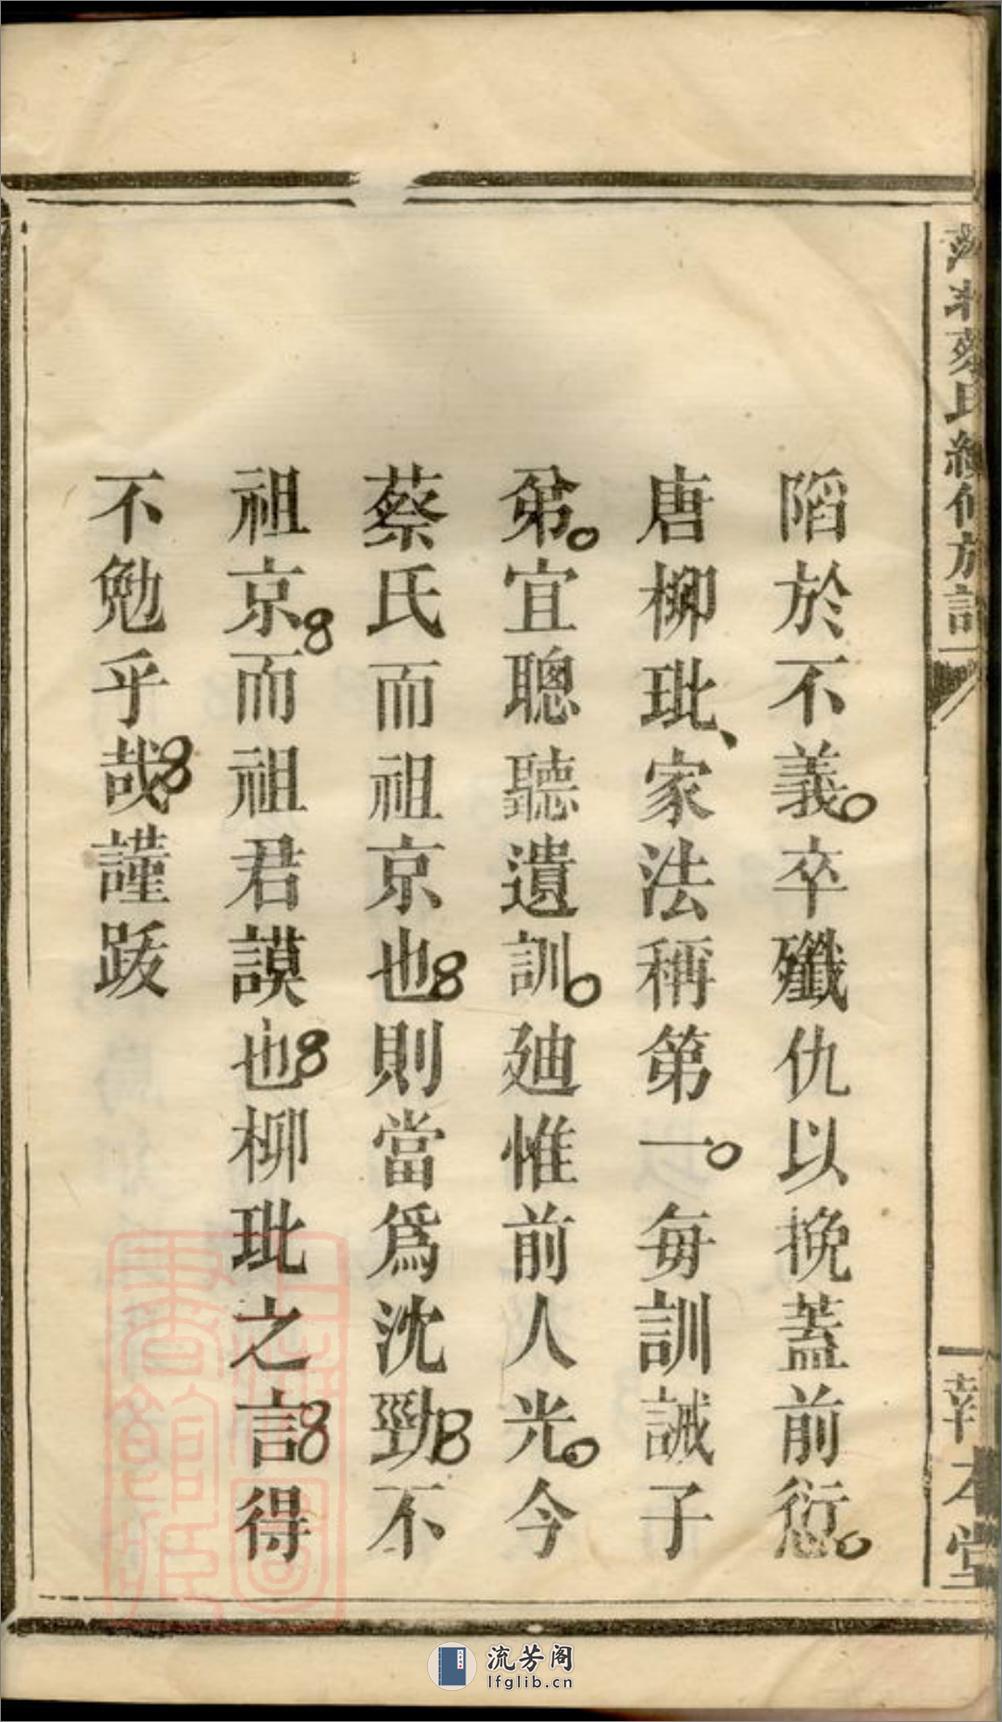 陷於不義卒殲仇以挽蓋前衍愆
唐柳玭家法稱第一每訓誡子
弟宜聰聽遺訓廸惟前人光今
蔡氏而祖京也則當爲沈勁不
祖京而祖君謨也柳玭之言得
不勉乎哉謹跋
蔡氏續修族譜
報本堂
流芳阁
lfglib.cn